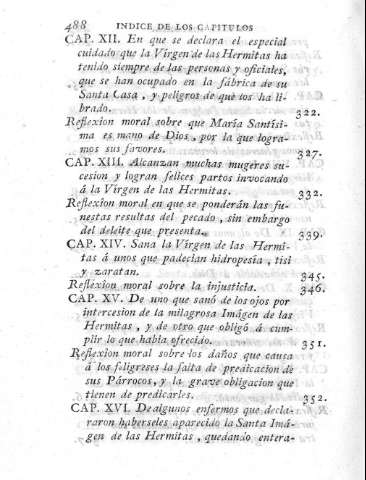 488 INDICE DE LOS CAPITULOS
CAP. XII. En que se declara el especial
cuidado que la Vírgen de las Hermitas ha
tenido siempre de las personas y oficiales,
que se han ocupado en la fábrica de su
Santa Casa, y peligros de que los ha li-
brado. 322.
Reflexion moral sobre que María Santísi-
ma es mano de Dios, por la que logra-
mos sus favores. 327.
CAP. XIII. Alcanzan muchas mugeres su-
cesion y logran felices partos invocando
á la Vírgen de las Hermitas. 332.
Reflexion moral en que se ponderán las fu-
nestas resultas del pecado, sin embargo
del deleite que presenta. 339.
CAP. XIV. Sana la Vírgen de las Hermi-
tas á unos que padecían hidropesía, tisi
y zaratan. 345.
Reflexion moral sobre la injusticia. 346.
CAP. XV. De uno que sanó de los ojos por
intercesion de la milagrosa Imágen de las
Hermitas, y de otro que obligó á cum-
plir lo que habia ofrecido. 351.
Reflexion moral sobre los daños que causa
á los feligreses la falta de predicacion de
sus Párrocos, y la grave obligacion que
tienen de predicarles. 352.
CAP. XVI. De algunos enfermos que decla-
raron haberseles aparecido la Santa Imá-
gen de las Hermitas, quedando entera-